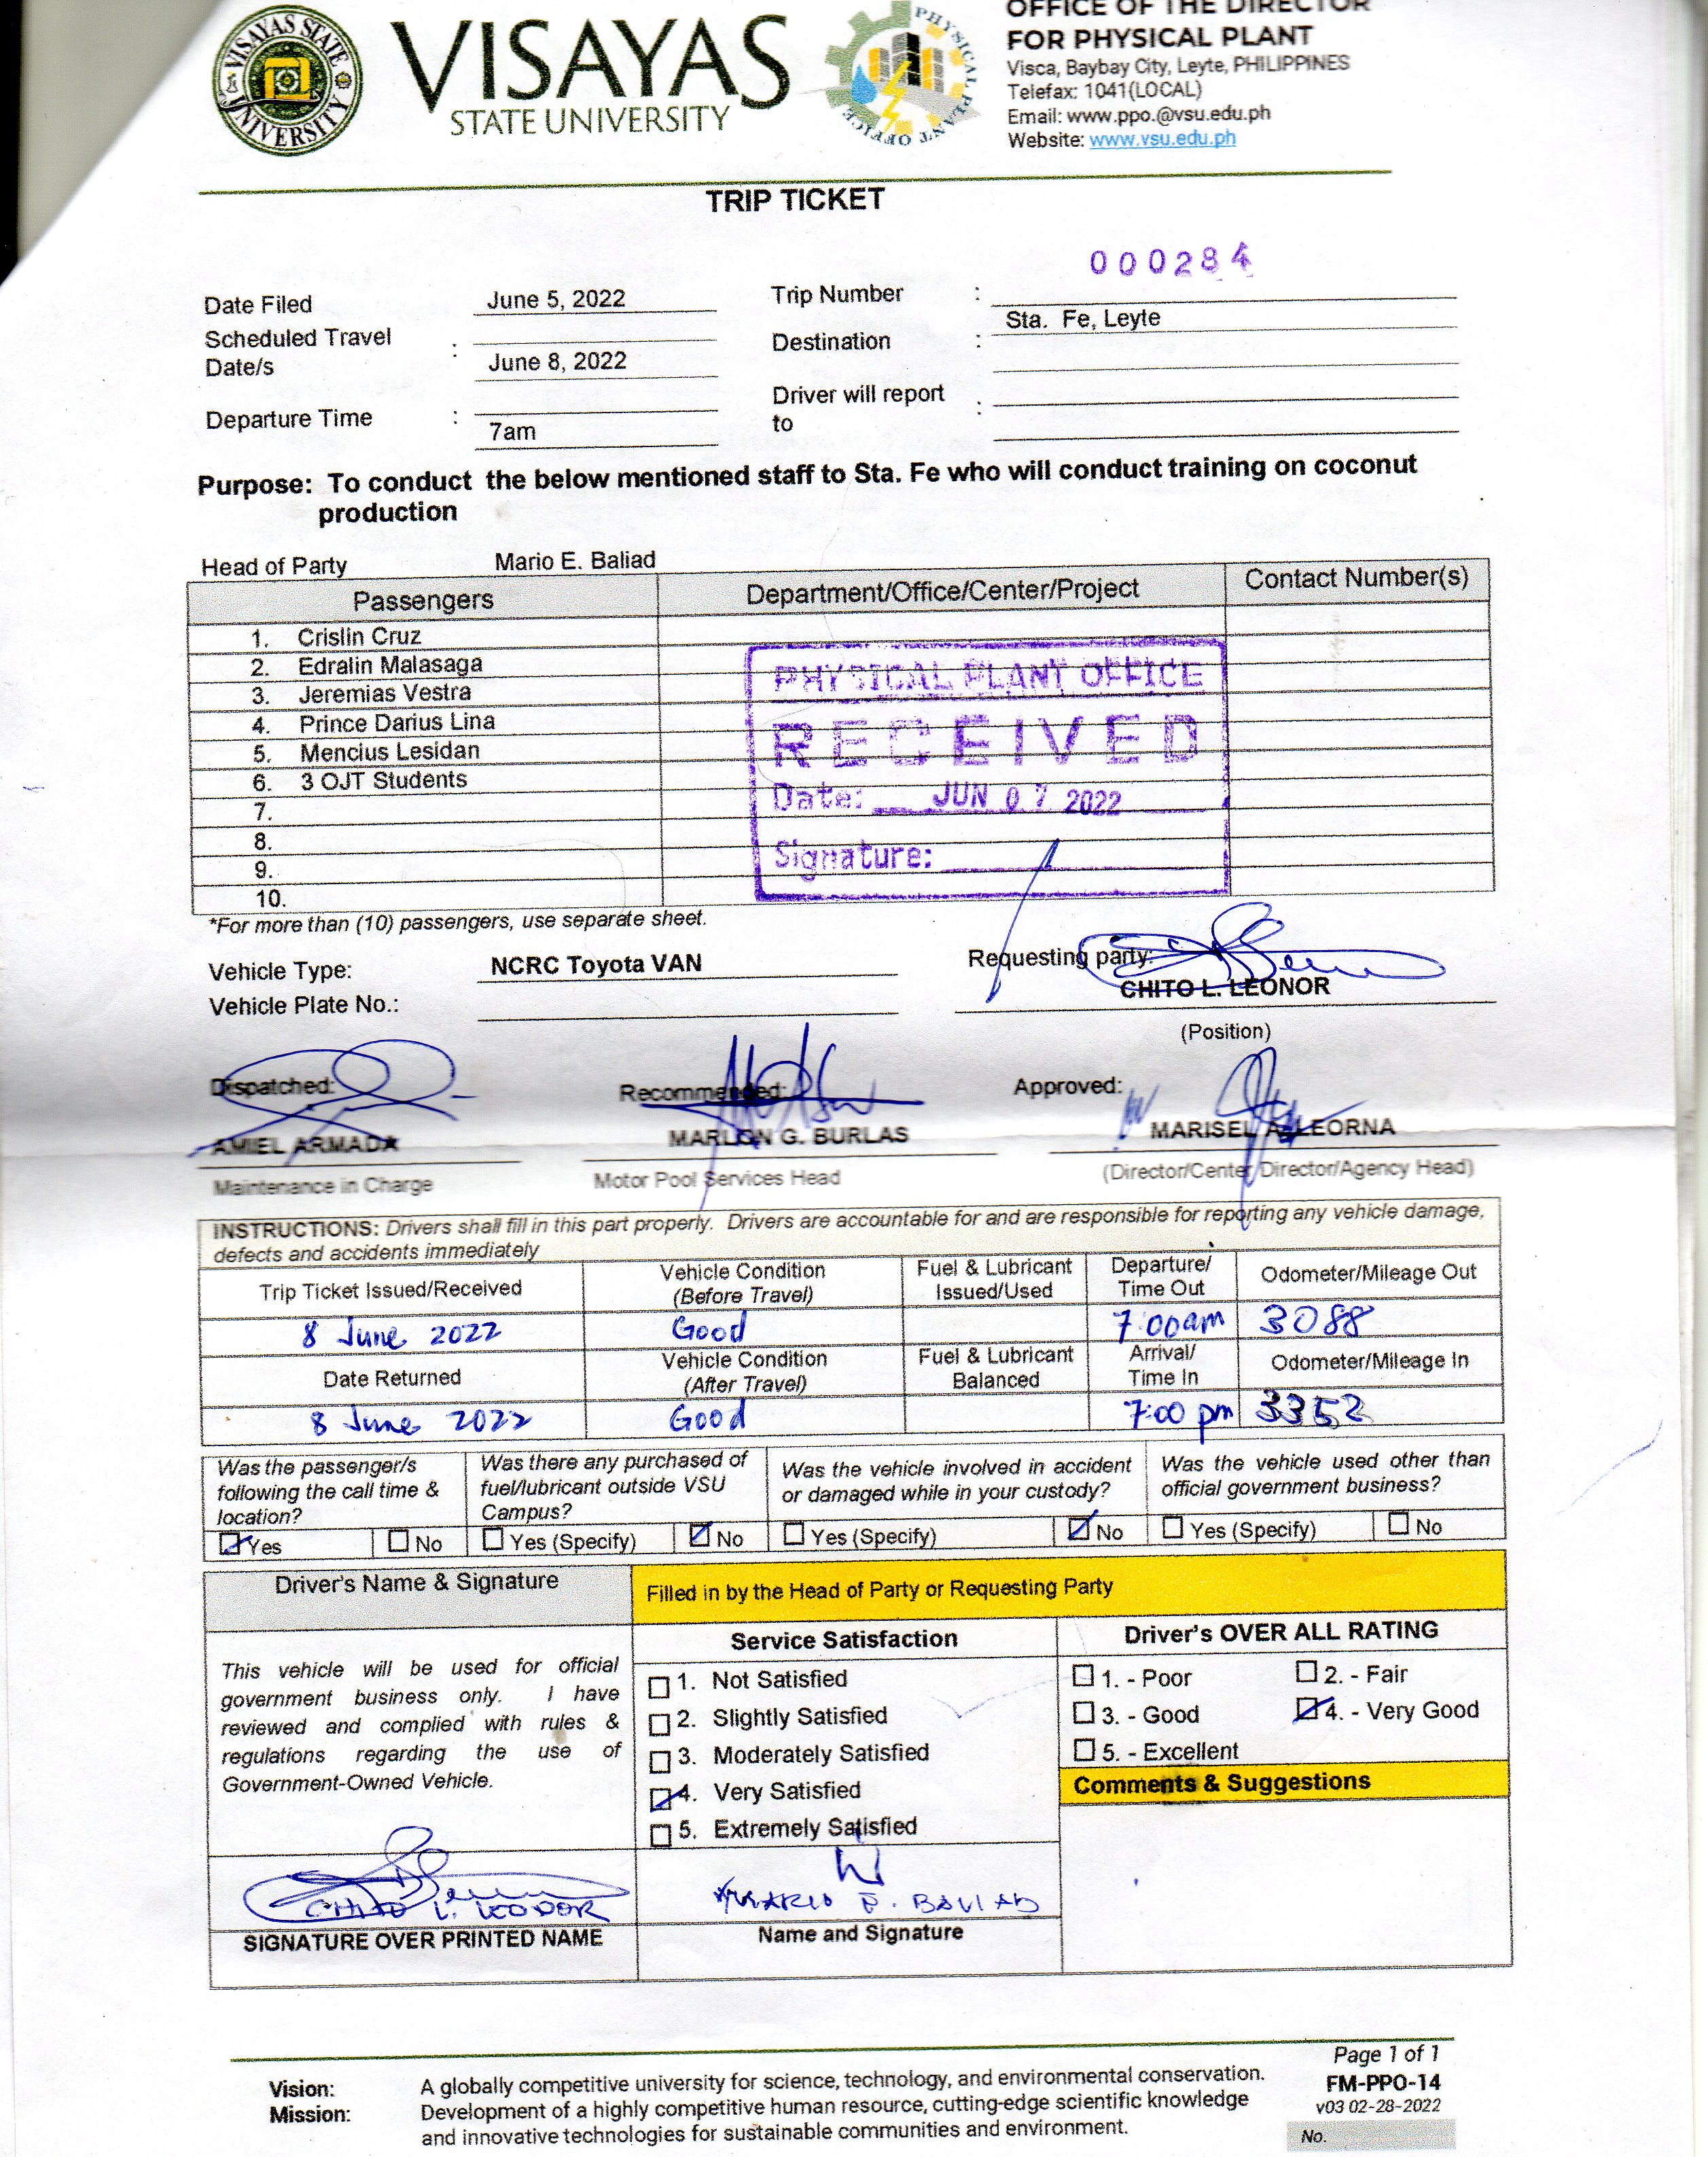 VISAYAS STATE UNIVERSITY
VISAYAS
STATE UNIVERSITY
PHYSICAL PLANT OFFICE
OFFICE OF THE DIRECTOR
FOR PHYSICAL PLANT
Visca, Baybay City, Leyte, PHILIPPINES
Telefax: 1041(LOCAL)
Email: www.ppo.@vsu.edu.ph
Website: www.vsu.edu.ph
TRIP TICKET
000284
Date Filed June 5, 2022 Trip Number :
Scheduled Travel Date/s : June 8, 2022 Destination : Sta. Fe, Leyte
Departure Time : 7am Driver will report to :
Purpose: To conduct the below mentioned staff to Sta. Fe who will conduct training on coconut
production
Head of Party Mario E. Baliad
Passengers Department/Office/Center/Project Contact Number(s)
1. Crislin Cruz
2. Edralin Malasaga
3. Jeremias Vestra
4. Prince Darius Lina
5. Mencius Lesidan
6. 3 OJT Students
7.
8.
9.
10.
PHYSICAL PLANT OFFICE
RECEIVED
Date: JUN 07 2022
Signature:
*For more than (10) passengers, use separate sheet.
Vehicle Type: NCRC Toyota VAN Requesting party:
CHITO L. LEONOR
Vehicle Plate No.:
(Position)
Dispatched: Recommended: Approved:
AMIEL ARMADA MARLON G. BURLAS MARISEL A. LEORNA
Maintenance in Charge Motor Pool Services Head (Director/Center Director/Agency Head)
INSTRUCTIONS: Drivers shall fill in this part properly. Drivers are accountable for and are responsible for reporting any vehicle damage,
defects and accidents immediately
Trip Ticket Issued/Received Vehicle Condition (Before Travel) Fuel & Lubricant Issued/Used Departure/ Time Out Odometer/Mileage Out
8 June 2022 Good 7:00am 3088
Date Returned Vehicle Condition (After Travel) Fuel & Lubricant Balanced Arrival/ Time In Odometer/Mileage In
8 June 2022 Good 7:00 pm 3352
Was the passenger/s following the call time & location? Was there any purchased of fuel/lubricant outside VSU Campus? Was the vehicle involved in accident or damaged while in your custody? Was the vehicle used other than official government business?
Yes No Yes (Specify) No Yes (Specify) No Yes (Specify) No
Driver's Name & Signature Filled in by the Head of Party or Requesting Party
Service Satisfaction Driver's OVER ALL RATING
This vehicle will be used for official
government business only. I have
reviewed and complied with rules &
regulations regarding the use of
Government-Owned Vehicle.
1. Not Satisfied
2. Slightly Satisfied
3. Moderately Satisfied
4. Very Satisfied
5. Extremely Satisfied
1. - Poor 2. - Fair
3. - Good 4. - Very Good
5. - Excellent
Comments & Suggestions
CHITO L. LEONOR MARIO E. BALIAD
SIGNATURE OVER PRINTED NAME Name and Signature
Page 1 of 1
FM-PPO-14
v03 02-28-2022
No.
Vision: A globally competitive university for science, technology, and environmental conservation.
Mission: Development of a highly competitive human resource, cutting-edge scientific knowledge
and innovative technologies for sustainable communities and environment.